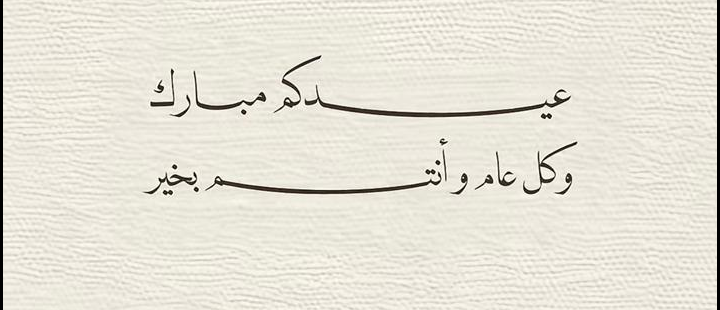 عيدكم مبارك
وكل عام و أنتم بخير